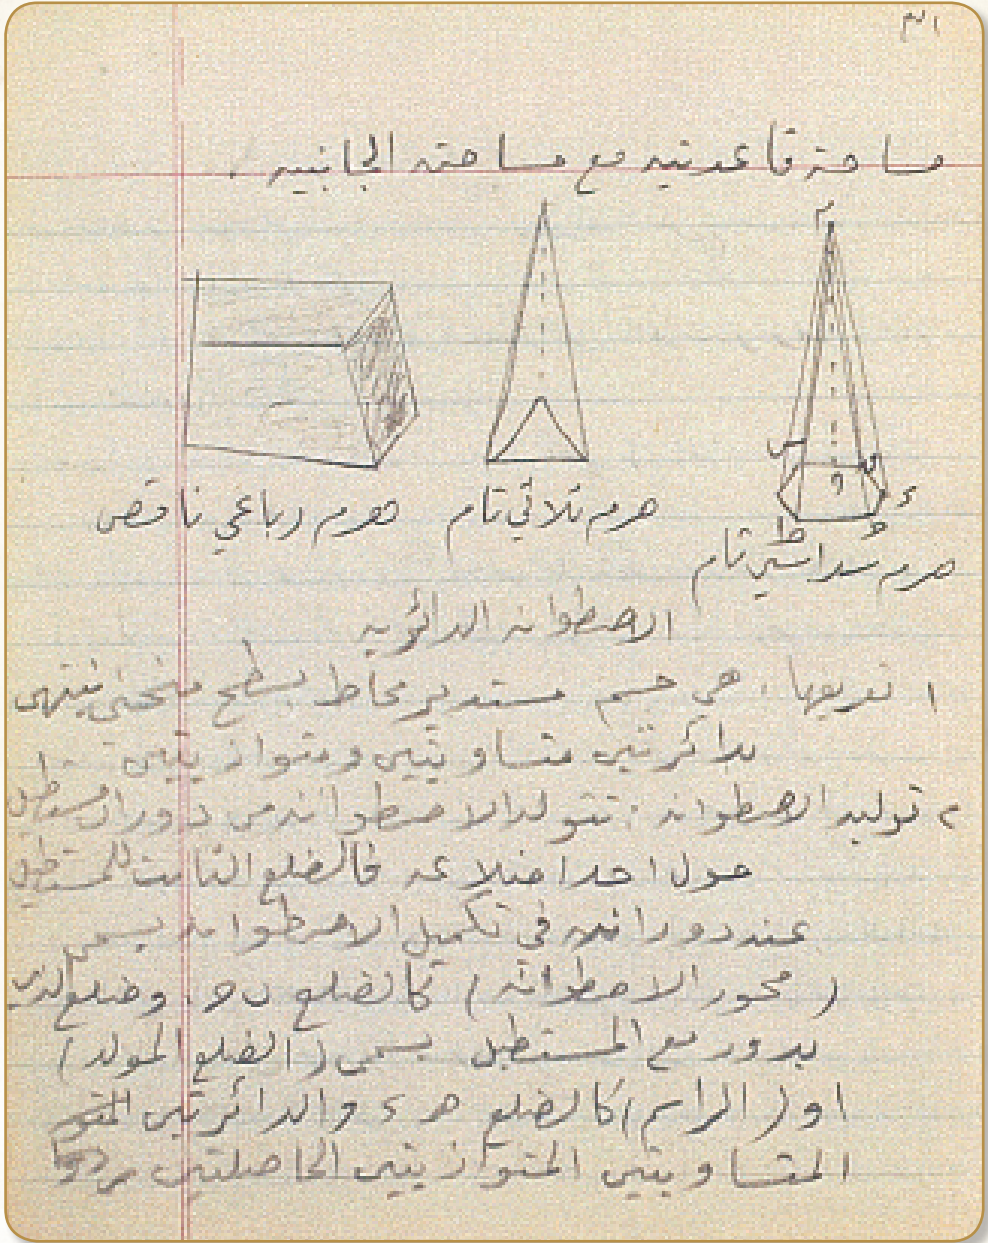 مساحة قاعدتيه مع مساحته الجانبيه .
م
س
و
ء
ه
ط
هرم سداسي تام
هرم ثلاثي تام
هرم رباعي ناقص
الاصطوانه الدائريه
١ تعريفها . هي جسم مستدير محاط بسطح منحني ينتهي
بدائرتين متساويتين ومتوازيتين
٢ توليد الاصطوانه : تتولد الاصطوانه من دوران مستطيل
حول احد اضلاعه فالضلع الثابت للمستطيل
عند دورانه في تكميل الاصطوانه يسمى
( محور الاصطوانه ) كالضلع ب و . وضلع الذي
يدور مع المستطيل يسمى ( الضلع المولد )
او ( الراسم ) كالضلع ح ء والدائرتين
المتساويتين المتوازيتين الحاصلتين